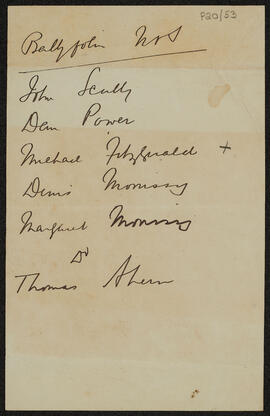 P20/53
Ballyfolin No 5
John Scully
Den Power
Michael Fitzgerald +
Denis Morrissy
Margaret Morrissy
Do
Thomas Ahern